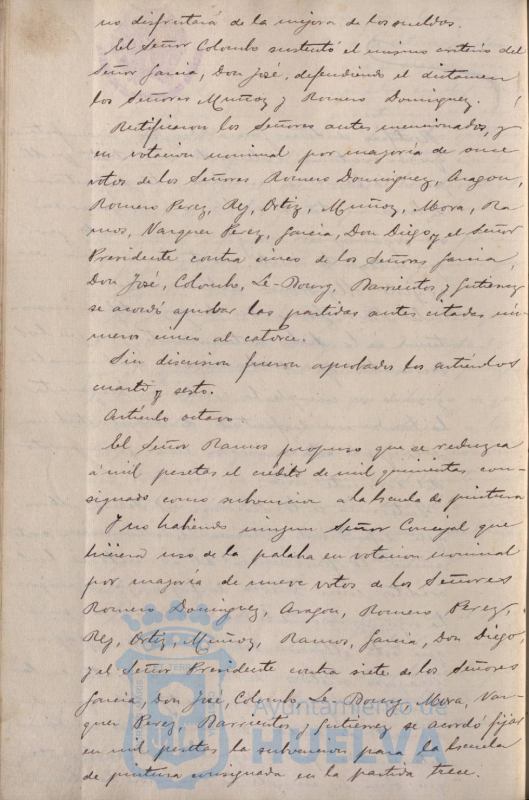 no disfrutará de la mejora de los sueldos.
El Señor Colombo sustentó el mismo criterio del
Señor Garcia, Don José, defendiendo el dictamen
los Señores Muñoz y Romero Dominguez.
Rectificaron los Señores antes mencionados, y
en votacion nominal por mayoría de once
votos de los Señores Romero Dominguez, Aragon,
Romero Perez, Rey, Ortiz, Muñoz, Mora, Ra-
mos, Vazquez Perez, Garcia, Don Diego y el Señor
Presidente contra cinco de los Señores Garcia,
Don José, Colombo, Le-Bourg, Barrientos y Gutierrez
se acordó aprobar las partidas antes citadas nú-
meros cinco al catorce.
Sin discusion fueron aprobados los artículos
cuarto y sexto.
Artículo octavo
El Señor Ramos propuso que se reduzca
á mil pesetas el crédito de mil quinientas con-
signado como subvencion a la Escuela de pintura
Y no habiendo ningun Señor Concejal que
hiciera uso de la palaba en votacion nominal
por mayoría de nueve votos de los Señores
Romero Dominguez, Aragon, Romero Perez,
Rey, Ortiz, Muñoz, Ramos, Garcia, Don Diego,
y el Señor Presidente contra siete de los Señores
Garcia, Don José, Colombo, Le-Bourg, Mora, Vaz-
quez Perez, Barrientos y Gutierrez se acordó fijar
en mil pesetas la subvencion para la Escuela
de pintura consignada en la partida trece.
Ayuntamiento de
HUELVA